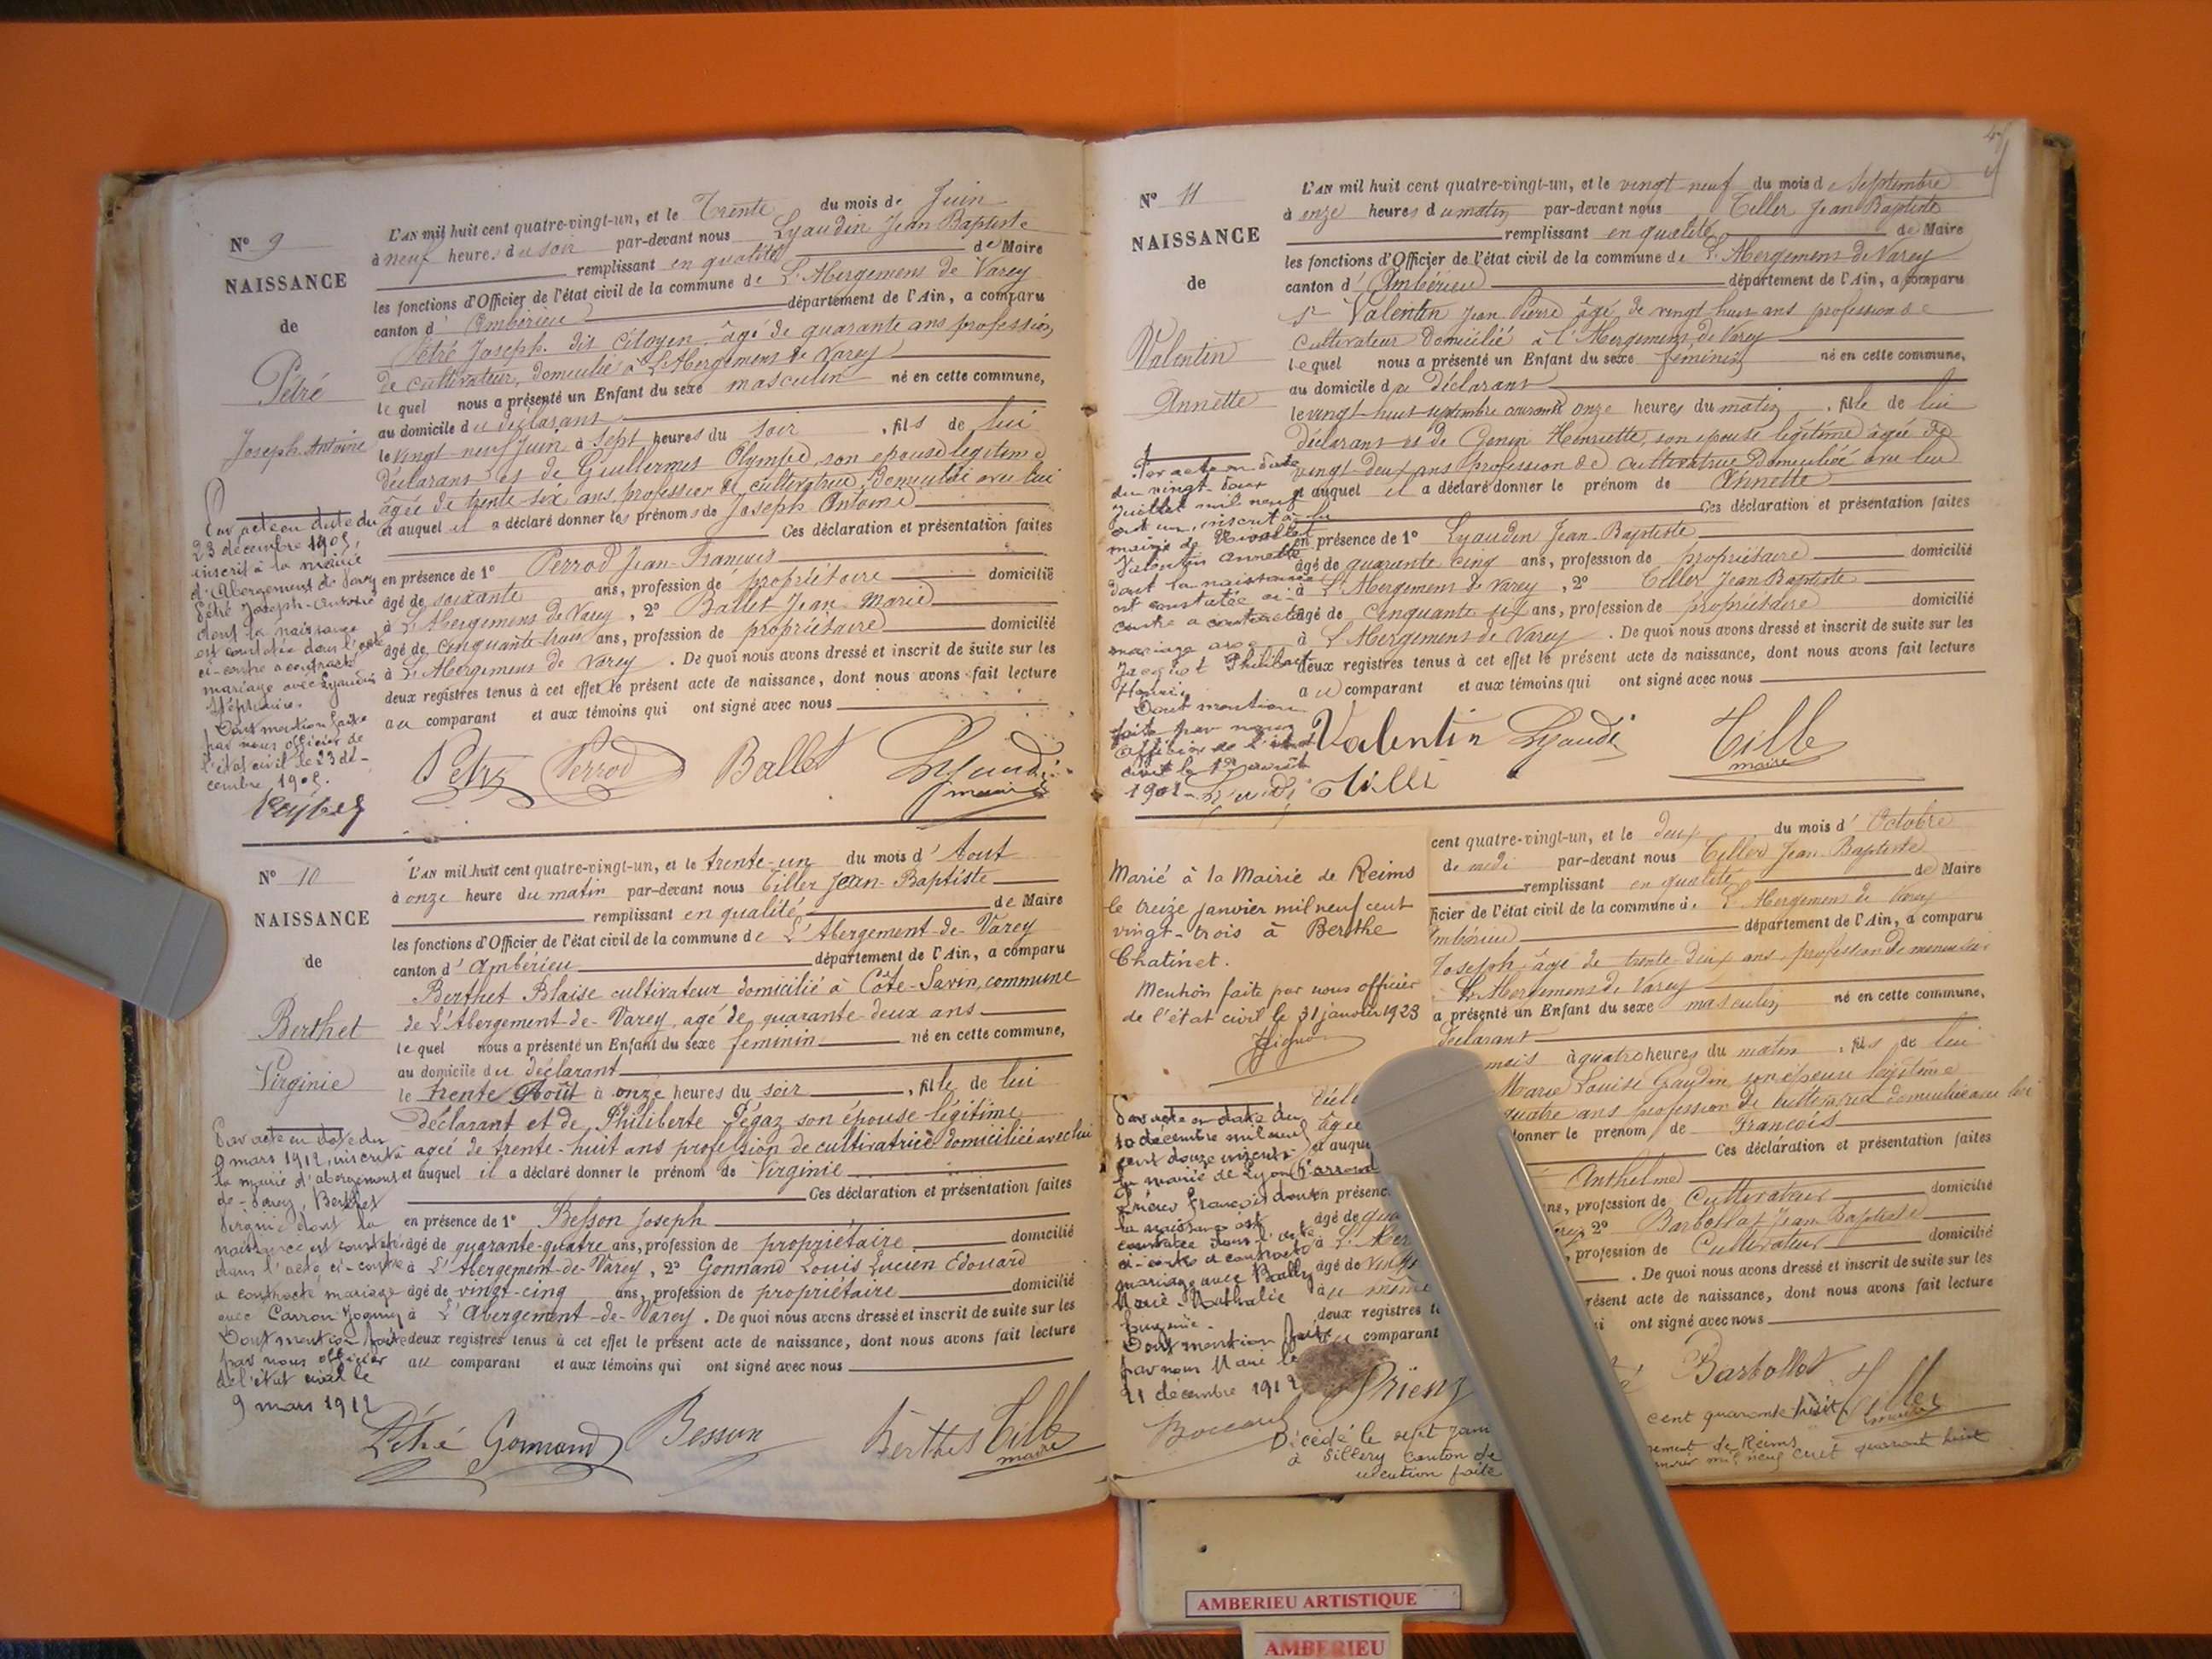 N° 9
NAISSANCE
de
Pétré
Joseph Antoine
L'AN mil huit cent quatre-vingt-un, et le Trente du mois de Juin
à neuf heures du soir par-devant nous Lyaudin Jean Baptiste
remplissant en qualité de Maire
les fonctions d'Officier de l'état civil de la commune de L'Abergement de Varey
canton d'Ambérieu département de l'Ain, a comparu
Pétré Joseph dit Citoyen âgé de quarante ans profession
de cultivateur, domicilié à L'Abergement de Varey
lequel nous a présenté un Enfant du sexe masculin né en cette commune,
au domicile du déclarant
le vingt-neuf Juin à sept heures du soir, fils de lui
déclarant et de Guillermet Olympe son épouse légitime
âgée de trente-six ans profession de cultivatrice, domiciliée avec lui
et auquel il a déclaré donner les prénoms de Joseph Antoine
Ces déclaration et présentation faites
en présence de 1° Perrod Jean-François
âgé de soixante ans, profession de propriétaire domicilié
à L'Abergement de Varey, 2° Ballet Jean Marie
âgé de cinquante-trois ans, profession de propriétaire domicilié
à L'Abergement de Varey. De quoi nous avons dressé et inscrit de suite sur les
deux registres tenus à cet effet le présent acte de naissance, dont nous avons fait lecture
au comparant et aux témoins qui ont signé avec nous
Par acte en date du
23 décembre 1905,
inscrit à la mairie
d'Abergement de Varey
Pétré Joseph-Antoine
dont la naissance
est constatée dans l'acte
ci-contre a contracté
mariage avec Lyaudin
Stéphanie.
Dont mention faite
par nous officier de
l'état civil le 23 dé-
cembre 1905.
Pétré Perrod Ballet Lyaudin
maire
N° 10
NAISSANCE
de
Berthet
Virginie
L'AN mil huit cent quatre-vingt-un, et le trente-un du mois d'Aout
à onze heure du matin par-devant nous Tiller Jean-Baptiste
remplissant en qualité de Maire
les fonctions d'Officier de l'état civil de la commune de L'Abergement-de-Varey
canton d'Ambérieu département de l'Ain, a comparu
Berthet Blaise cultivateur domicilié à Côte-Savin, commune
de L'Abergement-de-Varey, agé de quarante-deux ans
lequel nous a présenté un Enfant du sexe féminin né en cette commune,
au domicile du déclarant
le trente Août à onze heures du soir, fille de lui
Déclarant et de Philiberte Pégaz son épouse légitime
agée de trente-huit ans profession de cultivatrice domiciliée avec lui
et auquel il a déclaré donner le prénom de Virginie
Ces déclaration et présentation faites
en présence de 1° Besson Joseph
âgé de quarante-quatre ans, profession de propriétaire domicilié
à L'Abergement-de-Varey, 2° Gonnand Louis Lucien Edouard
âgé de vingt-cinq ans, profession de propriétaire domicilié
à L'Abergement-de-Varey. De quoi nous avons dressé et inscrit de suite sur les
deux registres tenus à cet effet le présent acte de naissance, dont nous avons fait lecture
au comparant et aux témoins qui ont signé avec nous
Par acte en date du
9 mars 1912, inscrit à
la mairie d'Abergement
de-Varey, Berthet
Virginie dont la
naissance est constatée
dans l'acte ci-contre
a contracté mariage
avec Carron
Dont mention faite
par nous officier
de l'état civil le
9 mars 1912
Pétré Gonnand Besson Berthet Tiller
maire
N° 11
NAISSANCE
de
Valentin
Annette
L'AN mil huit cent quatre-vingt-un, et le vingt-neuf du mois de Septembre
à onze heures du matin par-devant nous Tiller Jean Baptiste
remplissant en qualité de Maire
les fonctions d'Officier de l'état civil de la commune de L'Abergement de Varey
canton d'Ambérieu département de l'Ain, a comparu
Sr Valentin Jean Pierre âgé de vingt huit ans profession de
cultivateur domicilié à l'Abergement de Varey
lequel nous a présenté un Enfant du sexe féminin né en cette commune,
au domicile du déclarant
le vingt-huit septembre courant à onze heures du matin, fille de lui
déclarant et de Genin Henriette, son épouse légitime âgée de
vingt-deux ans profession de cultivatrice Domiciliée avec lui
et auquel il a déclaré donner le prénom de Annette
Ces déclaration et présentation faites
en présence de 1° Lyaudin Jean-Baptiste
âgé de quarante cinq ans, profession de propriétaire domicilié
à L'Abergement de Varey, 2° Tiller Jean Baptiste
âgé de cinquante six ans, profession de propriétaire domicilié
à L'Abergement de Varey. De quoi nous avons dressé et inscrit de suite sur les
deux registres tenus à cet effet le présent acte de naissance, dont nous avons fait lecture
au comparant et aux témoins qui ont signé avec nous
Par acte en date
du vingt-deux
juillet mil neuf
cent un, inscrit à la
mairie de
Valentin Annette
dont la naissance
est constatée ci-
contre a contracté
mariage avec
Jacquot Philibert
Henri.
Dont mention
faite par nous
officier de l'état
civil le 1er août
1901
Valentin Lyaudin Tiller
maire
Marié à la Mairie de Reims
le treize janvier mil neuf cent
vingt-trois à Berthe
Chatinet.
Mention faite par nous officier
de l'état civil le 31 janvier 1923
cent quatre-vingt-un, et le deux du mois d'Octobre
de midi par-devant nous Tiller Jean Baptiste
remplissant en qualité de Maire
ficier de l'état civil de la commune de L'Abergement de Varey
mbérieu département de l'Ain, a comparu
Joseph âgé de trente-deux ans profession de menuisier
L'Abergement de Varey
a présenté un Enfant du sexe masculin né en cette commune,
déclarant
mois à quatre heures du matin, fils de lui
Marie Louise Gaudin son épouse légitime
quatre ans profession de cultivatrice domiciliée avec lui
donner le prénom de François
Ces déclaration et présentation faites
Anthelme
ns, profession de Cultivateur domicilié
2° Barbollat Jean Baptiste
, profession de Cultivateur domicilié
. De quoi nous avons dressé et inscrit de suite sur les
résent acte de naissance, dont nous avons fait lecture
ont signé avec nous
Par acte en date du
10 décembre mil neuf
cent douze inscrit à
la mairie de Lyon
François dont
la naissance est
constatée dans l'acte
ci-contre a contracté
mariage avec Bally
Marie-Nathalie
Eugénie.
Dont mention faite
par nous Maire le
21 décembre 1912
âgée
et auqu
en présenc
âgé de qua
à L'Aber
âgé de vingt
au même
deux registres t
comparant
Barbollat Tiller
maire
Décédé le sept
à Sillery Canton de
cent quarante huit
ement de Reims
mil neuf cent quarante huit
AMBERIEU ARTISTIQUE
AMBERIEU